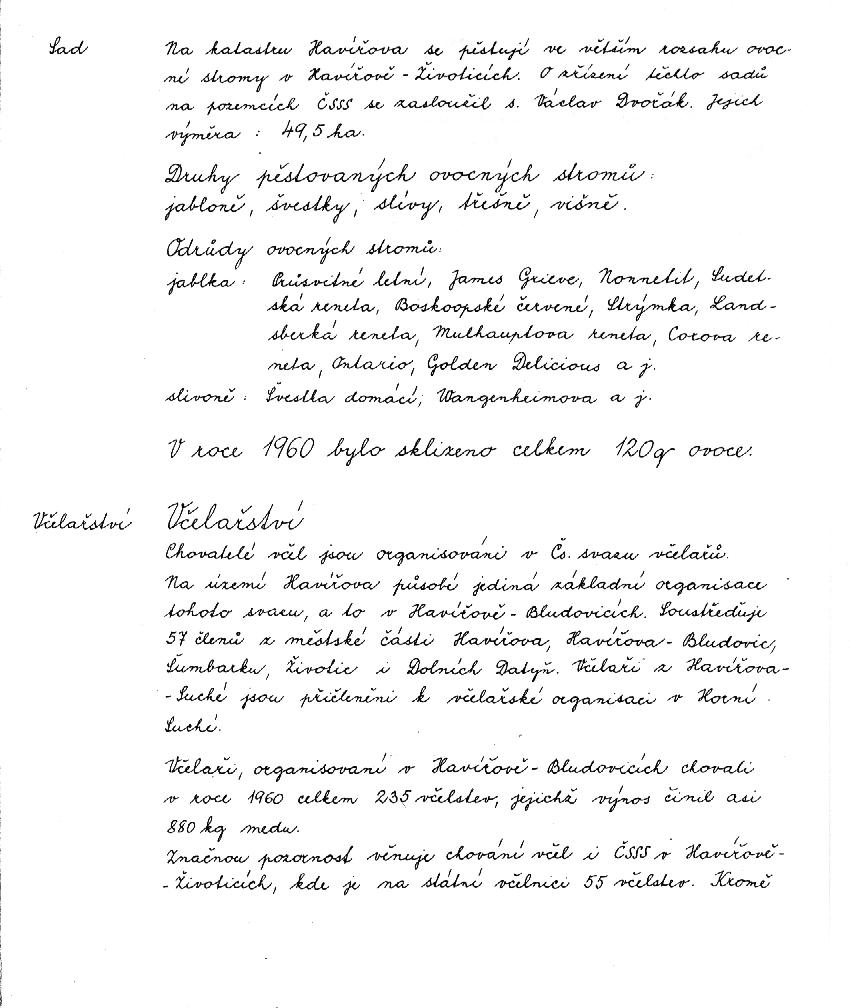 Sad
Na katastru Havířova se pěstují ve větším rozsahu ovoc-
né stromy v Havířově - Životicích. O zřízení těchto sadů
na pozemcích ČSSS se zasloužil s. Václav Dvořák. Jejich
výměra : 49,5 ha.
Druhy pěstovaných ovocných stromů:
jabloně, švestky, slívy, třešně, višně.
Odrůdy ovocných stromů:
jablka : Průsvitné letní, James Grieve, Nonnetit, Sudet-
ská reneta, Boskoopské červené, Strýmka, Land-
sberká reneta, Mulhauptova reneta, Coxova re-
neta, Ontario, Golden Delicious a j.
slivoně : Švestka domácí, Wangenheimova a j.
V roce 1960 bylo sklizeno celkem 120 q ovoce.
Včelařství
Včelařství
Chovatelé včel jsou organisováni v Čs. svazu včelařů.
Na území Havířova působí jediná základní organisace
tohoto svazu, a to v Havířově - Bludovicích. Soustřeďuje
57 členů z městské části Havířova, Havířova - Bludovic,
Šumbarku, Životic i Dolních Datyň. Včelaři z Havířova-
- Suché jsou přičleněni k včelařské organisaci v Horní
Suché.
Včelaři, organisovaní v Havířově - Bludovicích chovali
v roce 1960 celkem 235 včelstev, jejichž výnos činil asi
880 kg medu.
Značnou pozornost věnuje chování včel i ČSSS v Havířově-
- Životicích, kde je na státní včelnici 55 včelstev. Kromě